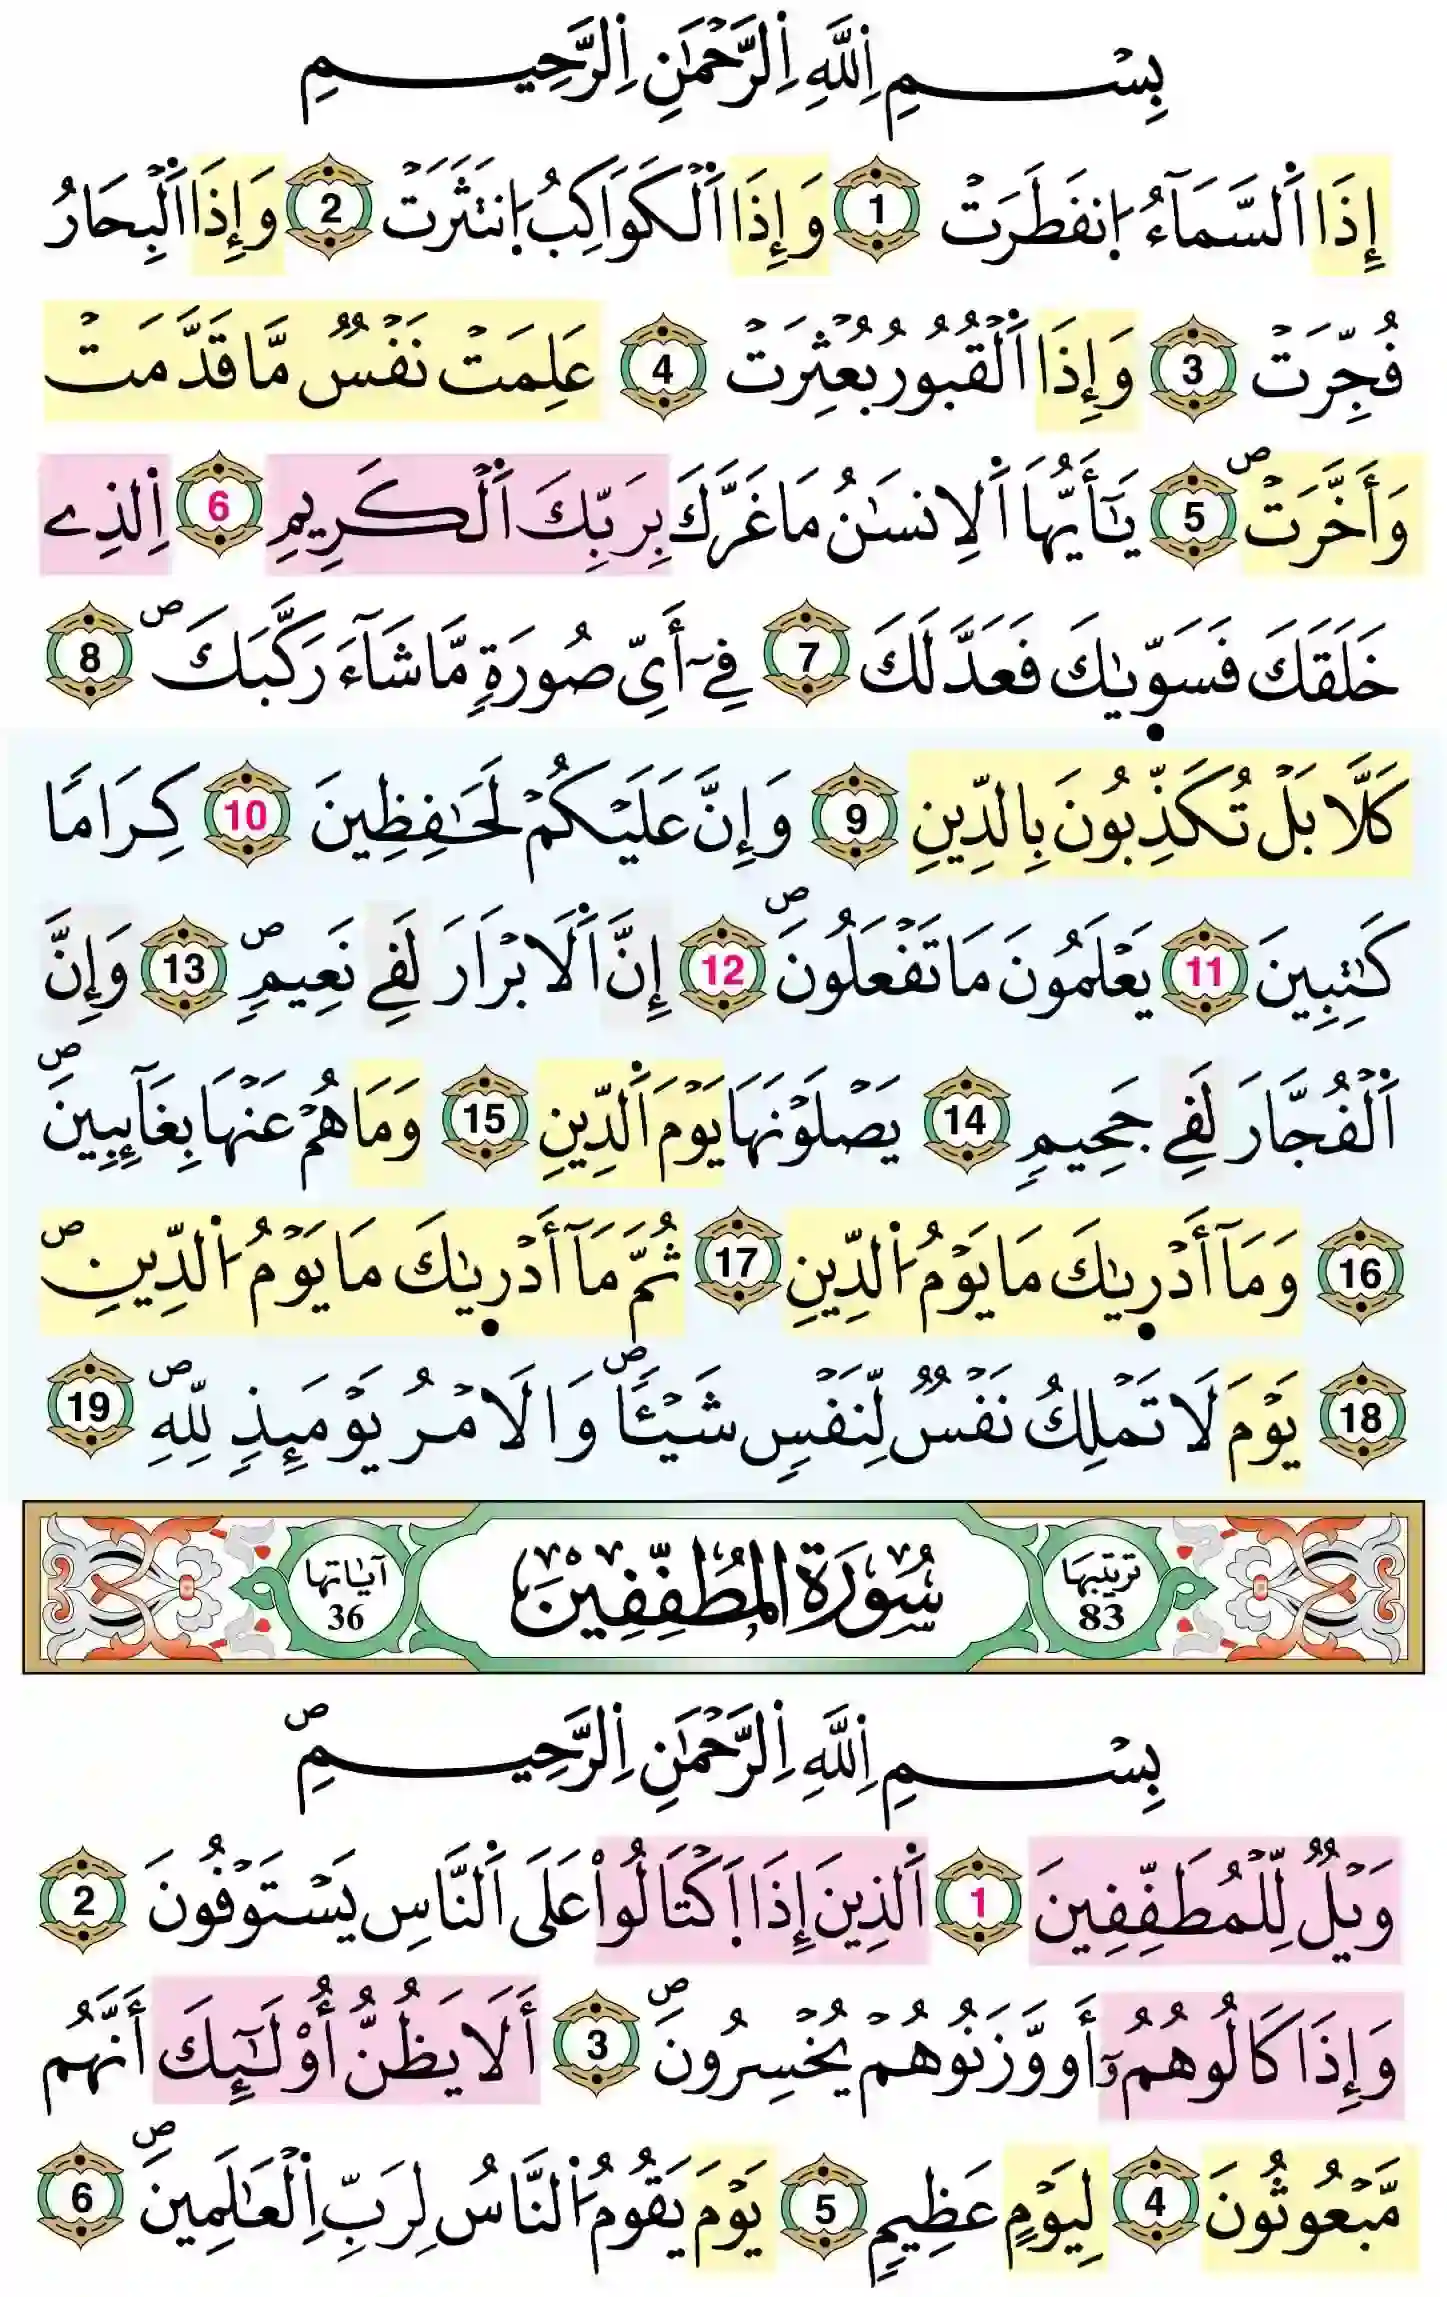 بِسْمِ اِ۬للَّهِ اِ۬لرَّحْمَٰنِ اِ۬لرَّحِيمِ
إِذَا اَ۬لسَّمَآءُ اُ۪نفَطَرَتْ 1 وَإِذَا اَ۬لْكَوَاكِبُ اُ۪نتَثَرَتْ 2 وَإِذَا اَ۬لْبِحَارُ
فُجِّرَتْ 3 وَإِذَا اَ۬لْقُبُورُ بُعْثِرَتْ 4 عَلِمَتْ نَفْسٌ مَّا قَدَّمَتْ
وَأَخَّرَتْۖ 5 يَٰٓأَيُّهَا اَ۬لِانسَٰنُ مَا غَرَّكَ بِرَبِّكَ اَ۬لْكَرِيمِ 6 اِ۬لذِے
خَلَقَكَ فَسَوّ۪يٰكَ فَعَدَّلَكَ 7 فِےٓ أَيِّ صُورَةٍ مَّا شَآءَ رَكَّبَكَۖ 8
كَلَّا بَلْ تُكَذِّبُونَ بِالدِّينِ 9 وَإِنَّ عَلَيْكُمْ لَحَٰفِظِينَ 10 كِرَامًا
كَٰتِبِينَ 11 يَعْلَمُونَ مَا تَفْعَلُونَۖ 12 إِنَّ اَ۬لَابْرَارَ لَفِے نَعِيمٍۖ 13 وَإِنَّ
اَ۬لْفُجَّارَ لَفِے جَحِيمٍ 14 يَصْلَوْنَهَا يَوْمَ اَ۬لدِّينِ 15 وَمَا هُمْ عَنْهَا بِغَآئِبِينَۖ
16 وَمَآ أَدْر۪يٰكَ مَا يَوْمُ اُ۬لدِّينِ 17 ثُمَّ مَآ أَدْر۪يٰكَ مَا يَوْمُ اُ۬لدِّينِۖ
18 يَوْمَ لَا تَمْلِكُ نَفْسٌ لِّنَفْسٍ شَيْـٔاًۖ وَالَامْرُ يَوْمَئِذٍ لِّلهِۖ 19
ترتيبها 83 سُورَةُ المُطَفِّفِينَ آياتها 36
بِسْمِ اِ۬للَّهِ اِ۬لرَّحْمَٰنِ اِ۬لرَّحِيمِۖ
وَيْلٌ لِّلْمُطَفِّفِينَ 1 اَ۬لذِينَ إِذَا اَ۪كْتَالُواْ عَلَى اَ۬لنَّاسِ يَسْتَوْفُونَ 2
وَإِذَا كَالُوهُمُۥٓ أَو وَّزَنُوهُمْ يُخْسِرُونَۖ 3 أَلَا يَظُنُّ أُوْلَٰٓئِكَ أَنَّهُم
مَّبْعُوثُونَ 4 لِيَوْمٍ عَظِيمٍ 5 يَوْمَ يَقُومُ اُ۬لنَّاسُ لِرَبِّ اِ۬لْعَٰلَمِينَۖ 6